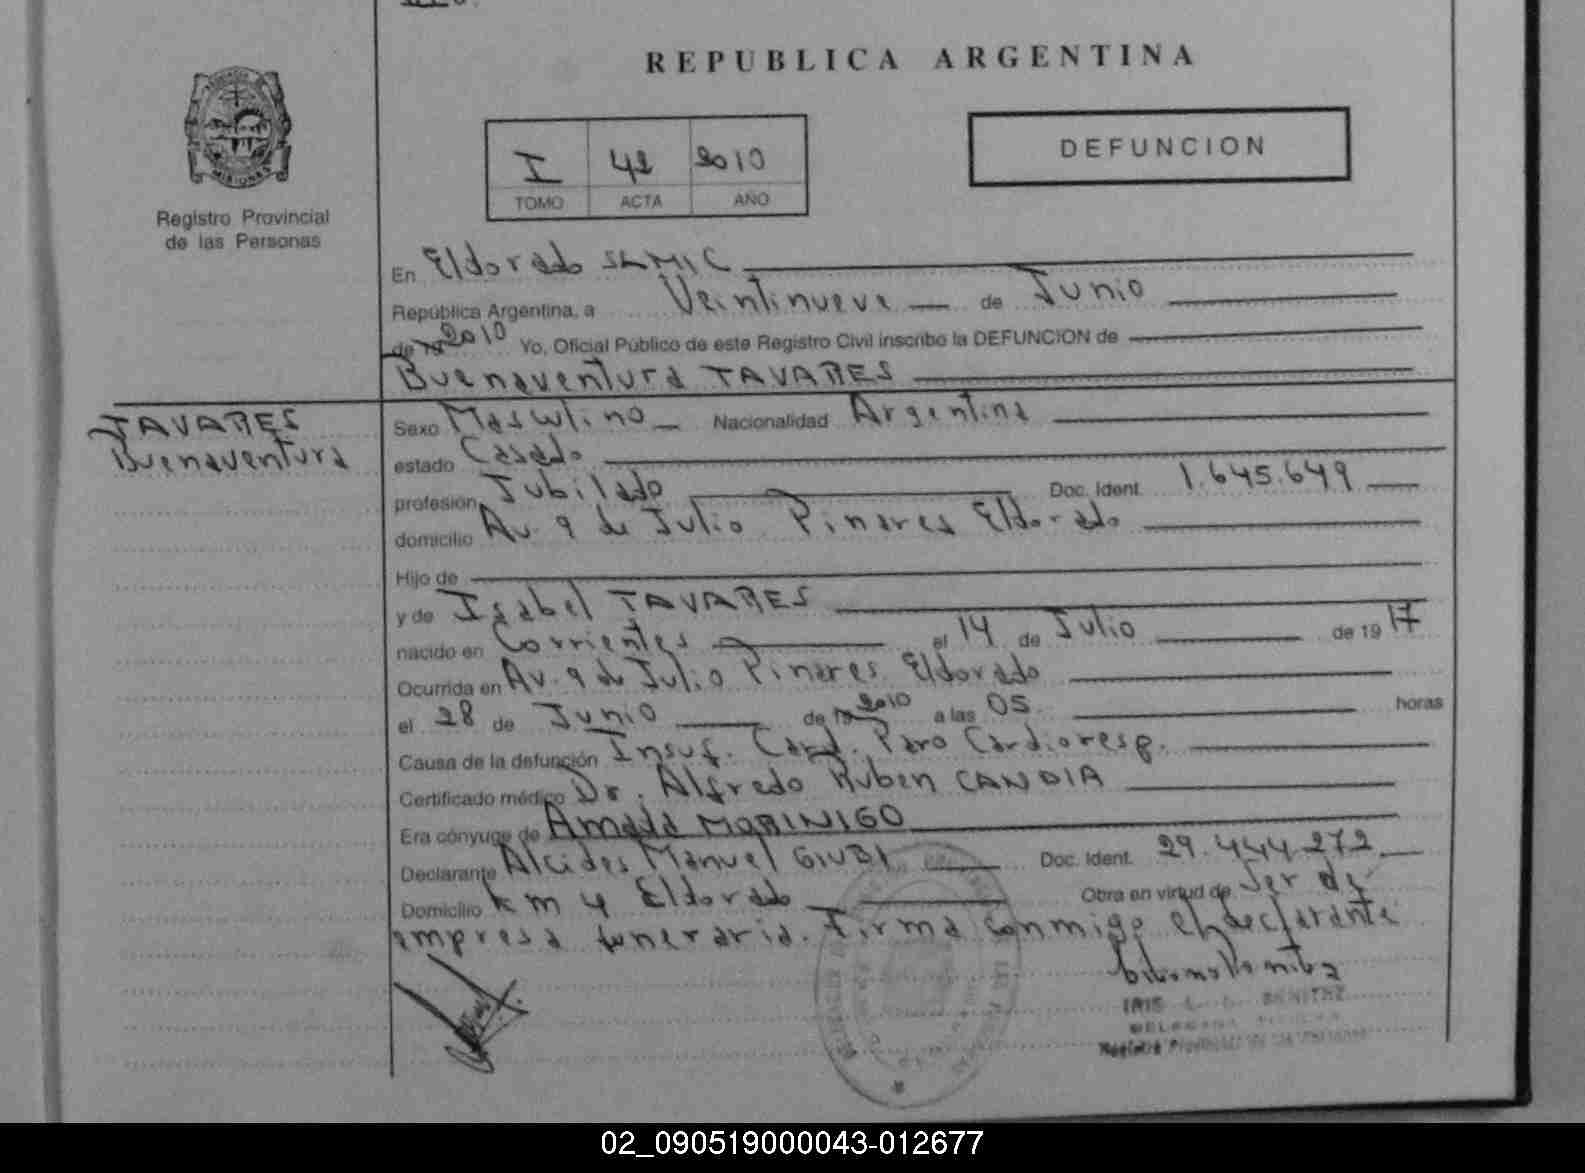 REPUBLICA ARGENTINA
MISIONES
Registro Provincial
de las Personas
I 42 2010
TOMO ACTA AÑO
DEFUNCION
En Eldorado SAMIC
República Argentina, a Veintinueve de Junio
de 19 2010 Yo, Oficial Público de este Registro Civil inscribo la DEFUNCION de
Buenaventura TAVARES
TAVARES
Buenaventura
Sexo Masculino Nacionalidad Argentina
estado Casado
profesión Jubilado Doc. Ident. 1.645.649
domicilio Av. 9 de Julio Pinares Eldorado
Hijo de
y de Isabel TAVARES
nacido en Corrientes el 14 de Julio de 1917
Ocurrida en Av. 9 de Julio Pinares Eldorado
el 28 de Junio de 19 2010 a las 05 horas
Causa de la defunción Insuf. Card. Paro Cardioresp.
Certificado médico Dr. Alfredo Ruben CANDIA
Era cónyuge de Amada MORINIGO
Declarante Alcides Manuel GIUBI Doc. Ident. 29.444.272
Domicilio km 4 Eldorado Obra en virtud de Ser de
empresa funeraria. Firma conmigo el declarante
IRIS BENITEZ
Registro Provincial de las Personas
02_090519000043-012677